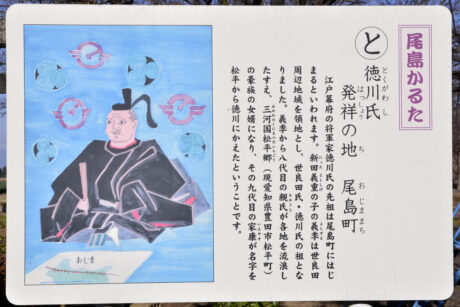 尾島かるた
と
とくがわし
徳川氏
はっしょう ち おじままち
発祥の地 尾島町
江戸幕府の将軍家徳川氏の先祖は尾島町にはじ
まるといわれます。新田義重の子の義季は世良田
周辺地域を領地とし、世良田氏・徳川氏の祖とな
りました。義季から八代目の親氏が各地を流浪し
たすえ、三河国松平郷（現愛知県豊田市松平町）
の豪族の女婿になり、その九代目の家康が名字を
松平から徳川にかえたということです。
おじま